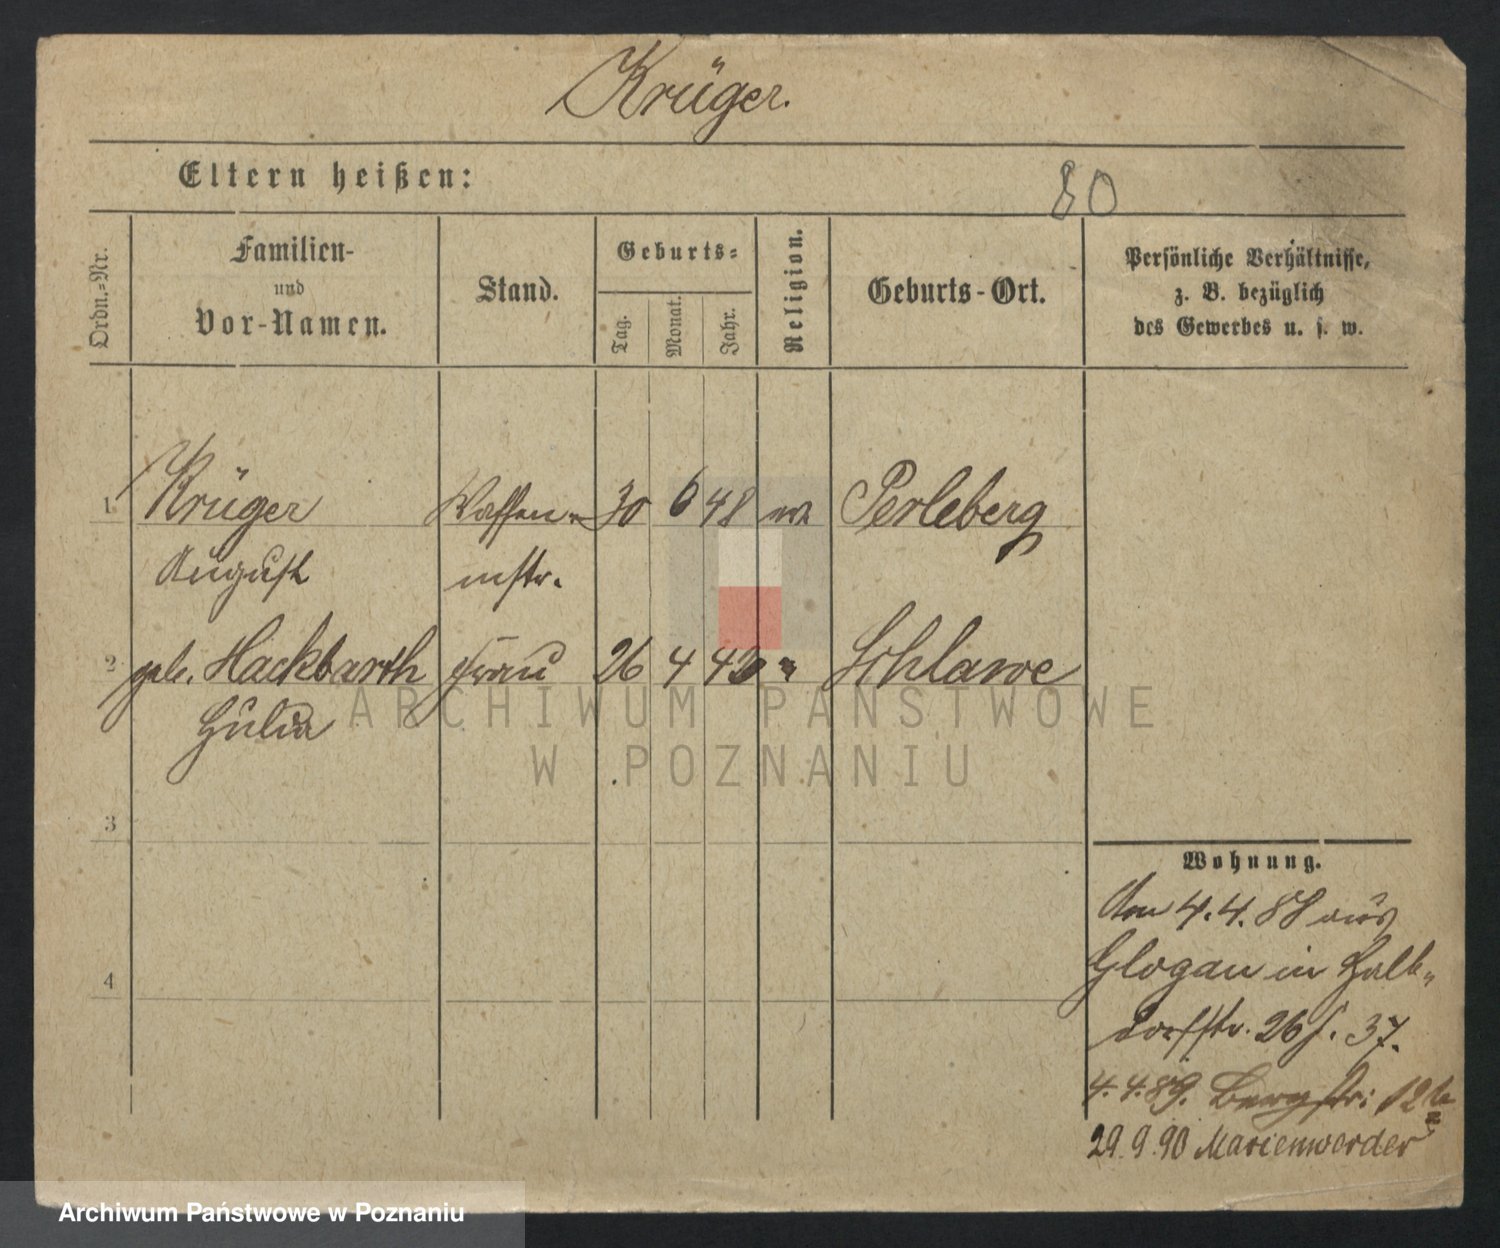 Krüger.
Eltern heißen:
80
Ordn.-Nr.
Familien-
und
Vor-Namen.
Stand.
Geburts-
Tag.
Monat.
Jahr.
Religion.
Geburts-Ort.
Persönliche Verhältnisse,
z. B. bezüglich
des Gewerbes u. s. w.
1 Krüger Waffen- 30 6 48 Perleberg
August mstr.
2 geb. Hackbarth Frau 26 4 42 " Schlawe
Julia
ARCHIWUM PAŃSTWOWE
W POZNANIU
3
Wohnung.
Am 4.4.88 aus
Glogau in Halb-
dorfstr. 26 37.
4
4.4.89. Bergstr: 12b
29.9.90 Marienwerder
Archiwum Państwowe w Poznaniu